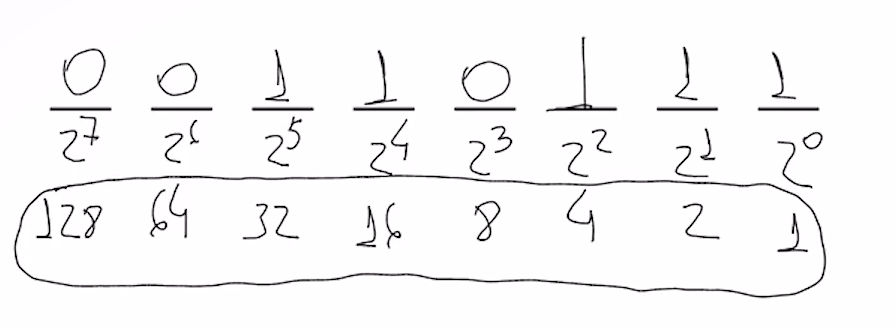 0 0 1 1 0 1 1 1
2⁷ 2⁶ 2⁵ 2⁴ 2³ 2² 2¹ 2⁰
128 64 32 16 8 4 2 1